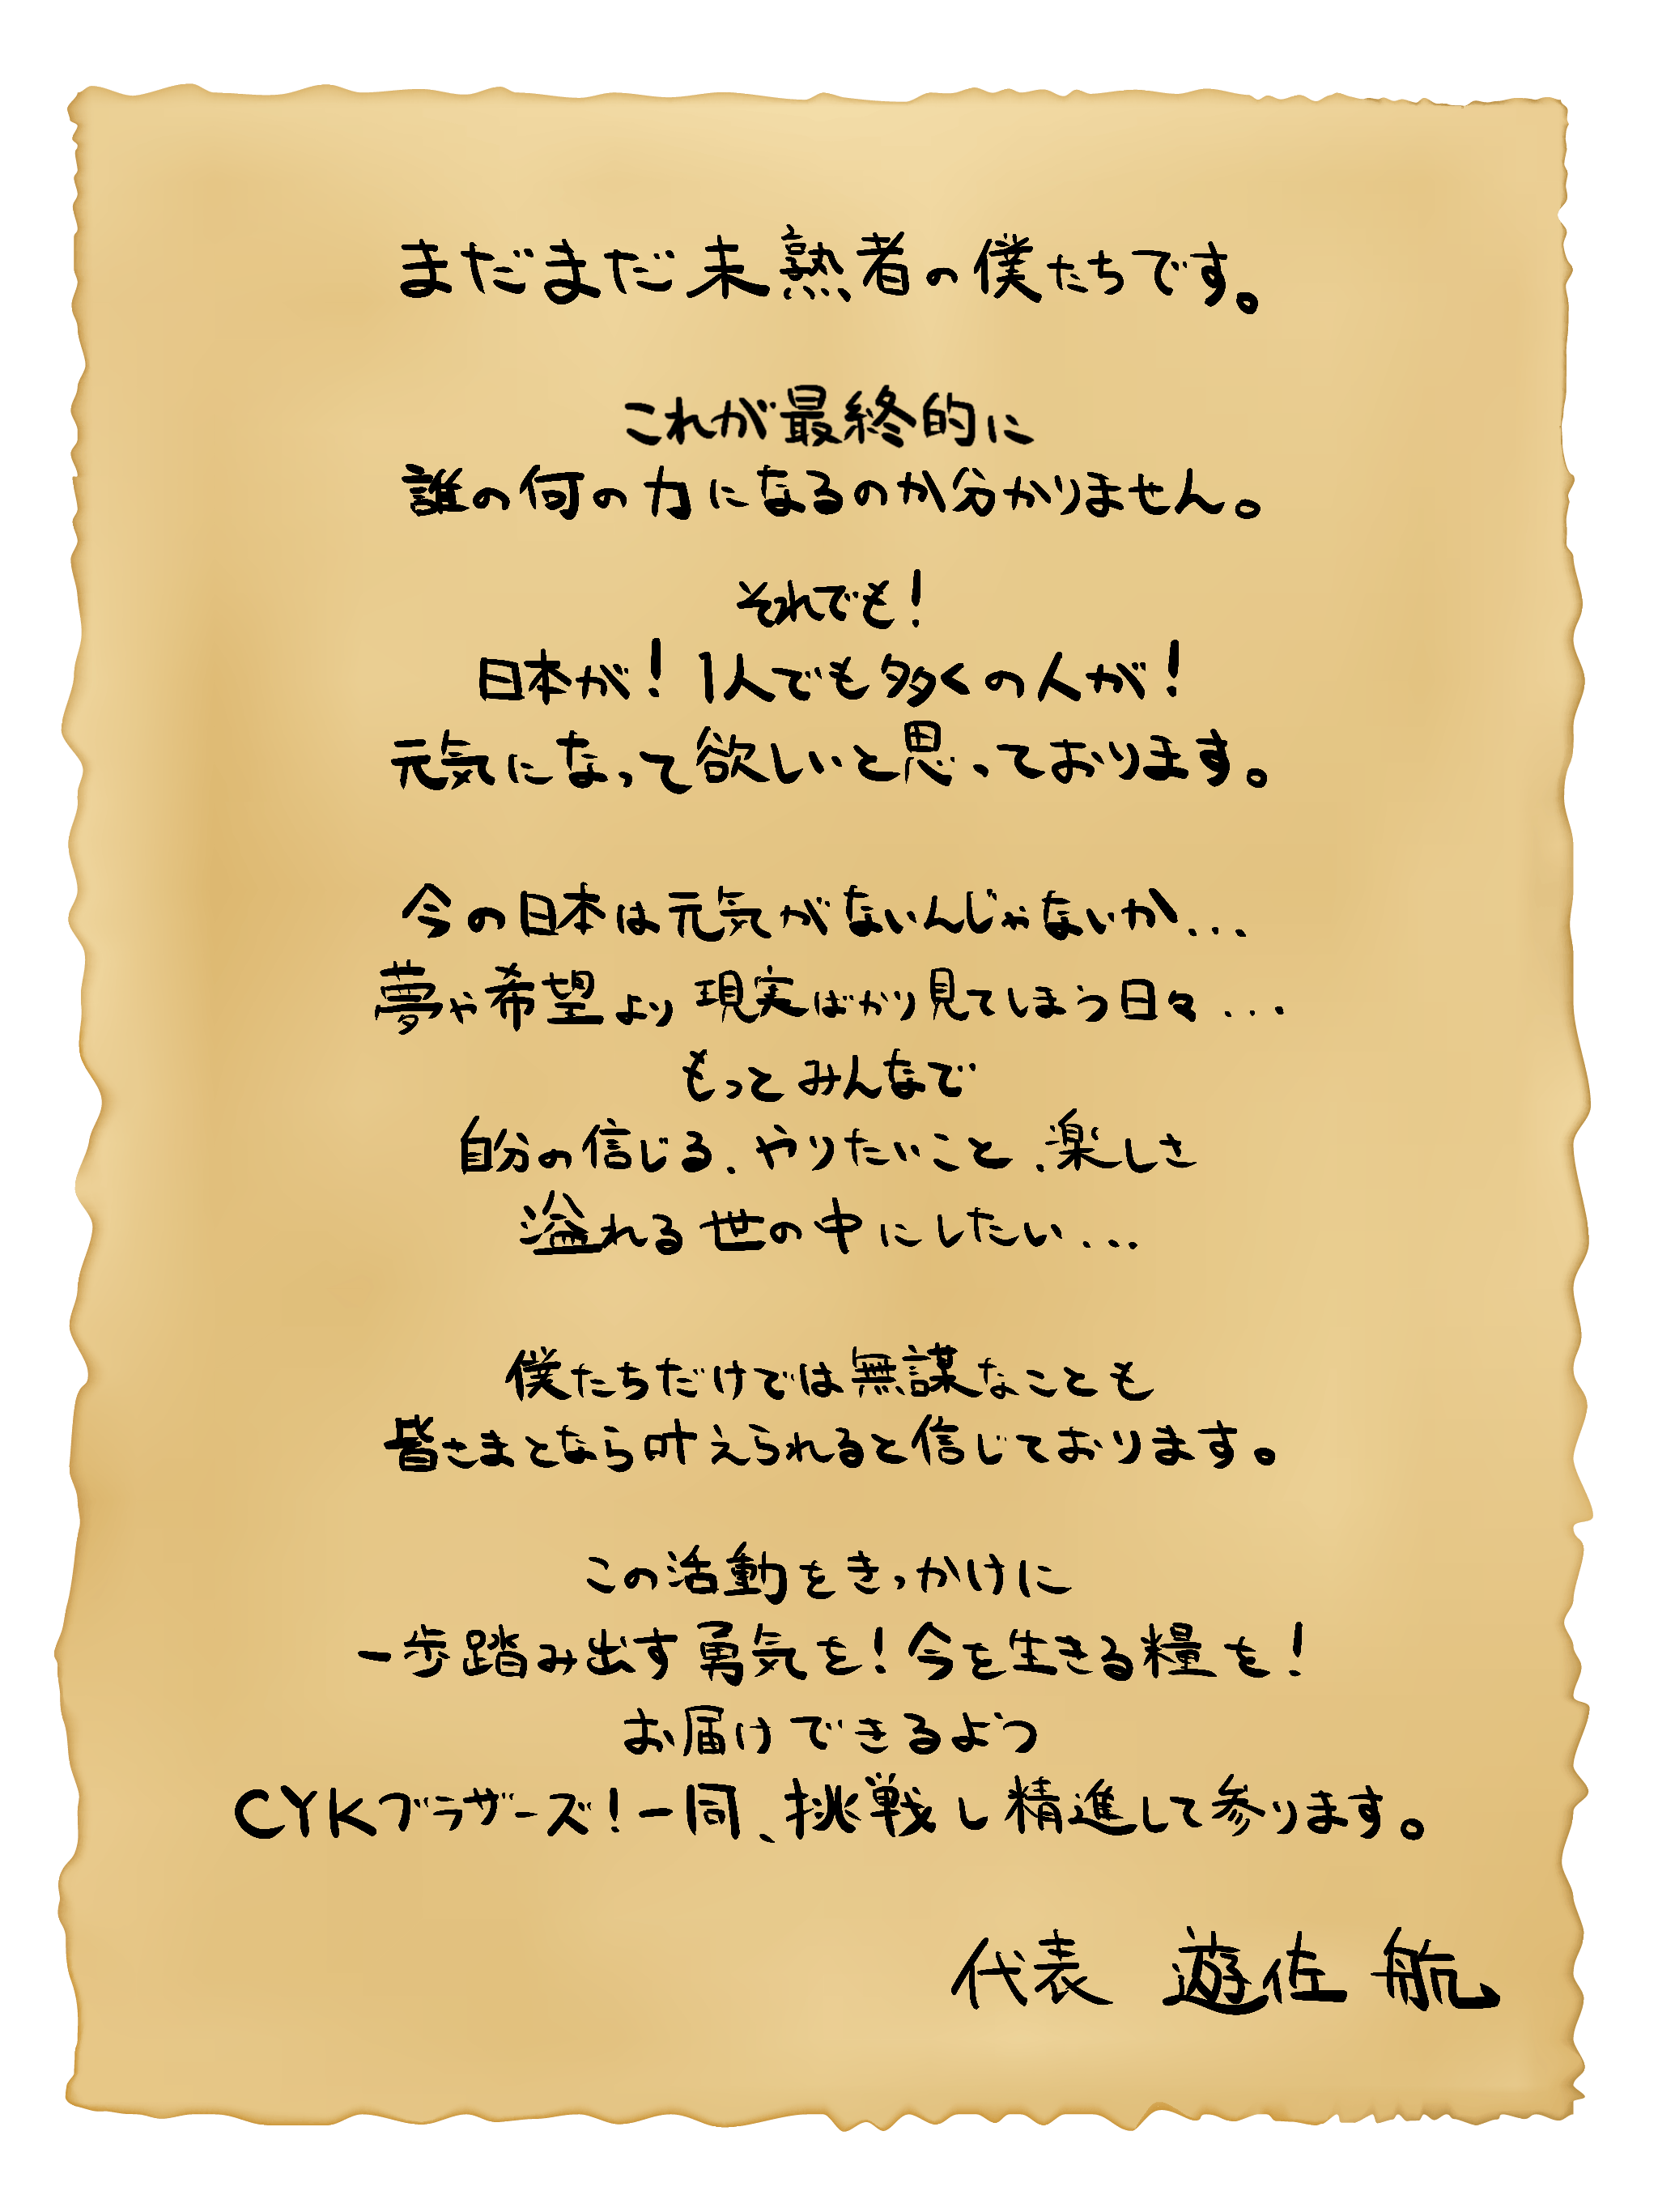 まだまだ未熟者の僕たちです。
これが最終的に
誰の何の力になるのか分かりません。
それでも!
日本が! 1人でも多くの人が!
元気になって欲しいと思っております。
今の日本は元気がないんじゃないか...
夢や希望より現実ばかり見てしまう日々...
もっとみんなで
自分の信じる、やりたいこと、楽しさ
溢れる世の中にしたい...
僕たちだけでは無謀なことも
皆さまとなら叶えられると信じております。
この活動をきっかけに
一歩踏み出す勇気を!今を生きる糧を!
お届けできるよう
CYKブラザーズ!一同、挑戦し精進して参ります。
代表 遊佐 航